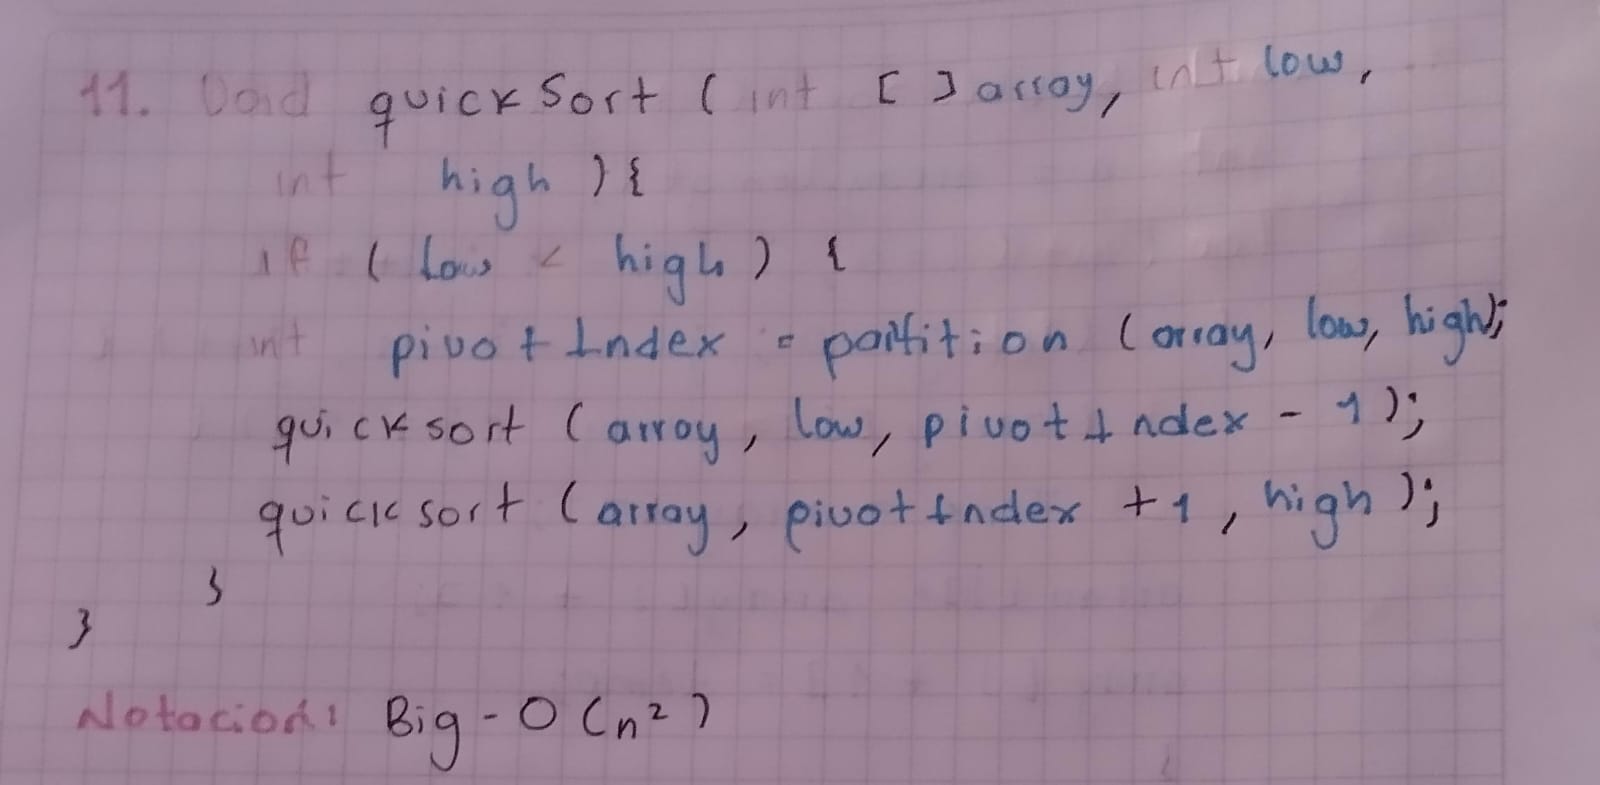 11. Void quickSort ( int [ ] array, int low,
int high ) {
if ( low < high ) {
int pivotIndex = partition (array, low, high);
quicksort ( array, low, pivotIndex - 1 );
quicksort ( array, pivotIndex + 1, high );
}
}
Notacion: Big - O (n²)